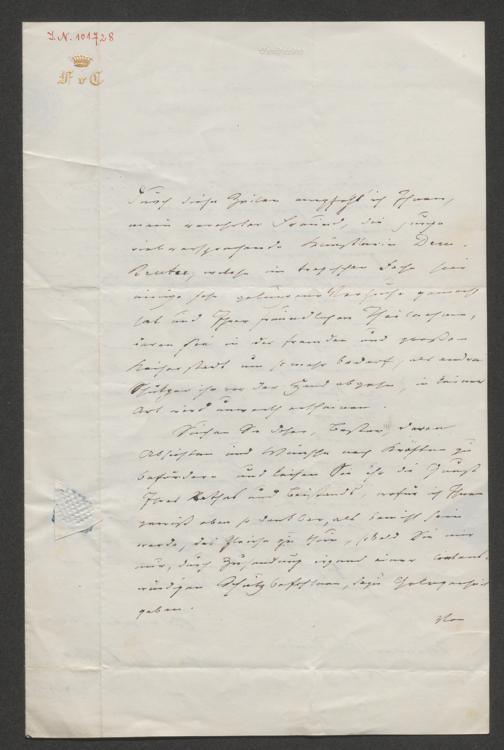 I.N. 101728
F v C
Durch diese Zeilen empfehl' ich Ihnen,
mein verehrter Freund, die junge
vielversprechende Künstlerin Dem.
Beutee, welche im tragischen Fache hier
einige sehr gelungene Versuche gemacht
hat und Ihrer freundlichen Theilnahme,
deren sie in der fremden und großen
Kaiserstadt um so mehr bedarf, als andre
Schützer ihr vor der Hand abgehen, in keiner
Art wird unwerth erscheinen.
Suchen Sie daher, Bester, deren
Absichten und Wünsche nach Kräften zu
befördern und leihen Sie ihr die Gunst
Ihres Rathes und Beistands, wofür ich Ihnen
gewiß eben so dankbar, als bereit sein
werde, das Gleiche zu thun, sobald Sie mir
nur, durch Zusendung irgend einer
würdigen Schutzbefohlnen, dazu Gelegenheit
geben.